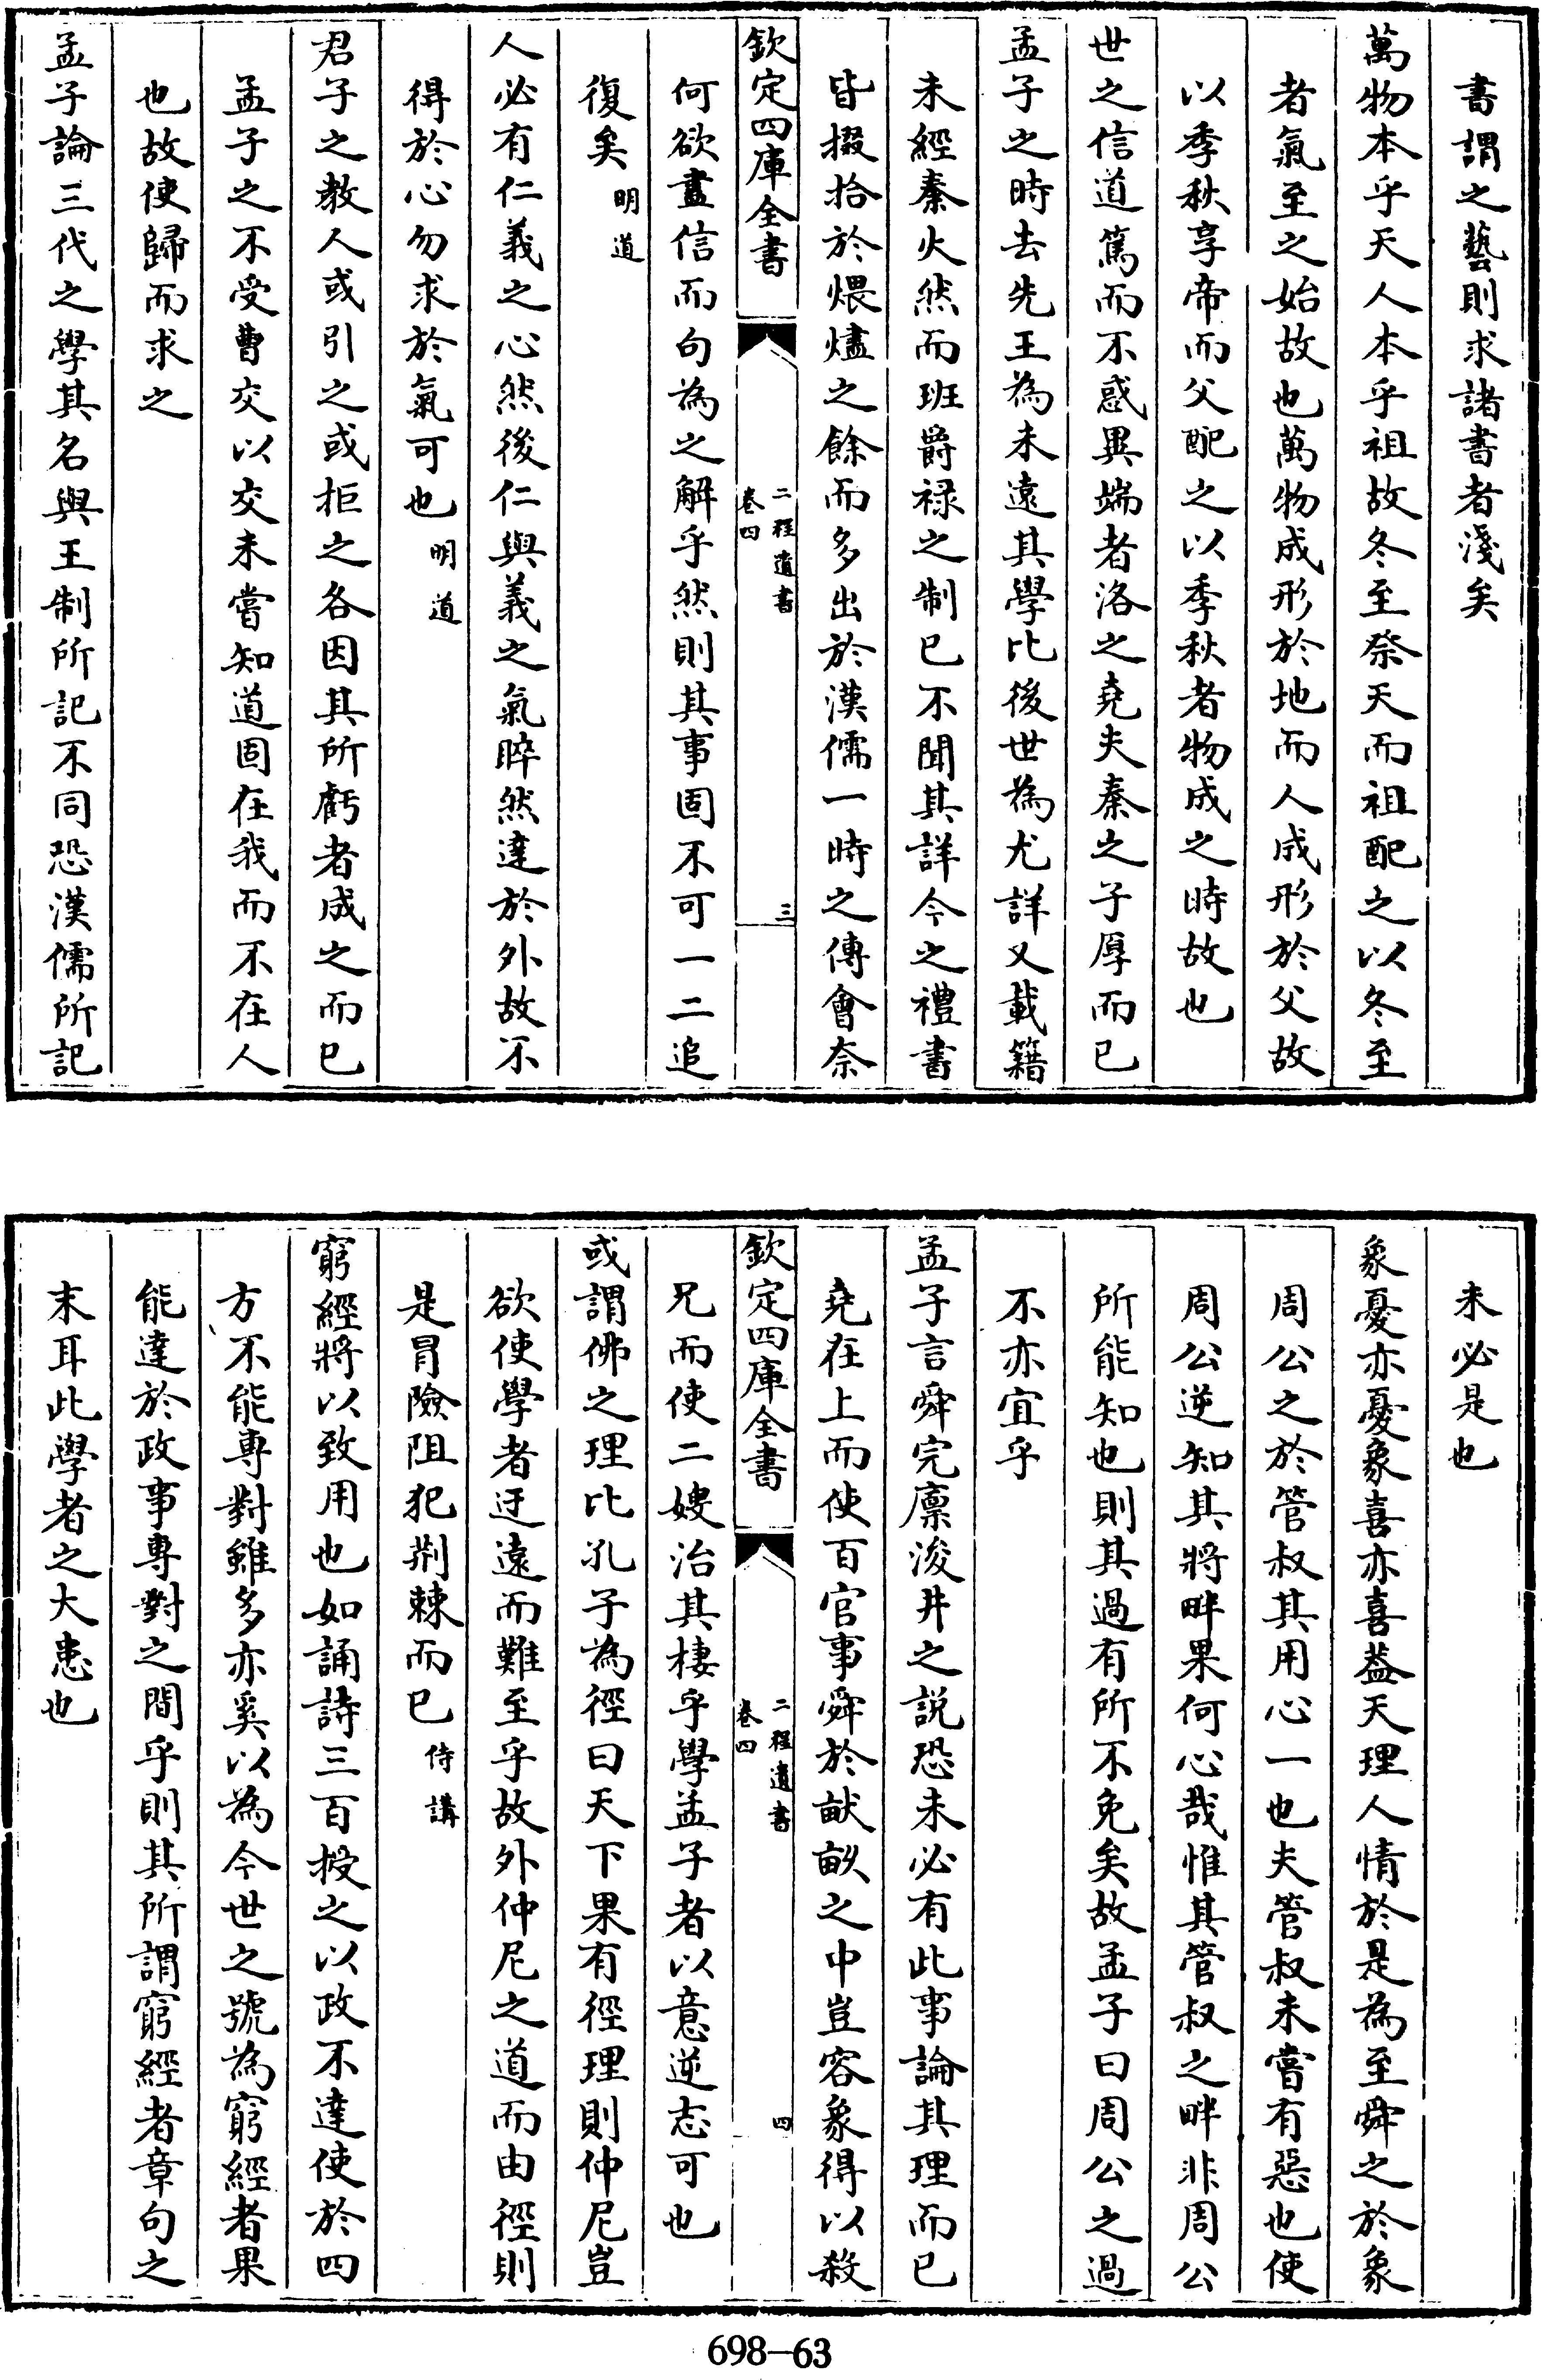 書謂之藝則求諸書者淺矣
萬物本乎天人本乎祖故冬至祭天而祖配之以冬至
者氣至之始故也萬物成形於地而人成形於父故
以季秋享帝而父配之以季秋者物成之時故也
世之信道篤而不惑異端者洛之堯夫秦之子厚而已
孟子之時去先王為未遠其學比後世為尤詳又載籍
未經秦火然而班爵祿之制已不聞其詳今之禮書
皆掇拾於煨燼之餘而多出於漢儒一時之傅會奈
欽定四庫全書
二程遺書
卷四
三
何欲盡信而句為之解乎然則其事固不可一二追
復矣明道
人必有仁義之心然後仁與義之氣睟然達於外故不
得於心勿求於氣可也明道
君子之教人或引之或拒之各因其所虧者成之而已
孟子之不受曹交以交未嘗知道固在我而不在人
也故使歸而求之
孟子論三代之學其名與王制所記不同恐漢儒所記
未必是也
象憂亦憂象喜亦喜蓋天理人情於是為至舜之於象
周公之於管叔其用心一也夫管叔未嘗有惡也使
周公逆知其將畔果何心哉惟其管叔之畔非周公
所能知也則其過有所不免矣故孟子曰周公之過
不亦宜乎
孟子言舜完廩浚井之說恐未必有此事論其理而已
堯在上而使百官事舜於畎畝之中豈容象得以殺
欽定四庫全書
二程遺書
卷四
四
兄而使二嫂治其棲乎學孟子者以意逆志可也
或謂佛之理比孔子為徑曰天下果有徑理則仲尼豈
欲使學者迂遠而難至乎故外仲尼之道而由徑則
是冒險阻犯荆棘而已侍講
窮經將以致用也如誦詩三百授之以政不達使於四
方不能專對雖多亦奚以為今世之號為窮經者果
能達於政事專對之間乎則其所謂窮經者章句之
末耳此學者之大患也
698-63